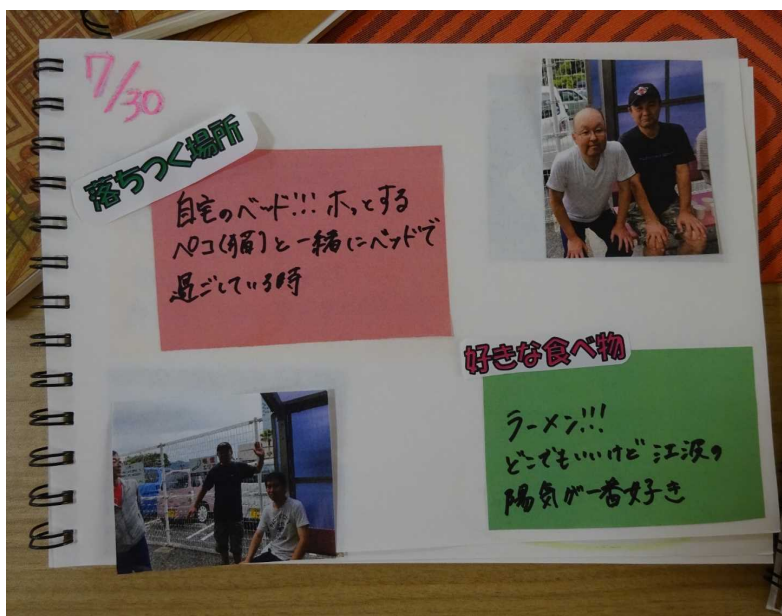 7/30
落ちつく場所
自宅のベッド!!! ホッとする
ペコ(猫)と一緒にベッドで
過ごしている時
好きな食べ物
ラーメン!!!
どこでもいいけど 江波の
陽気が一番好き